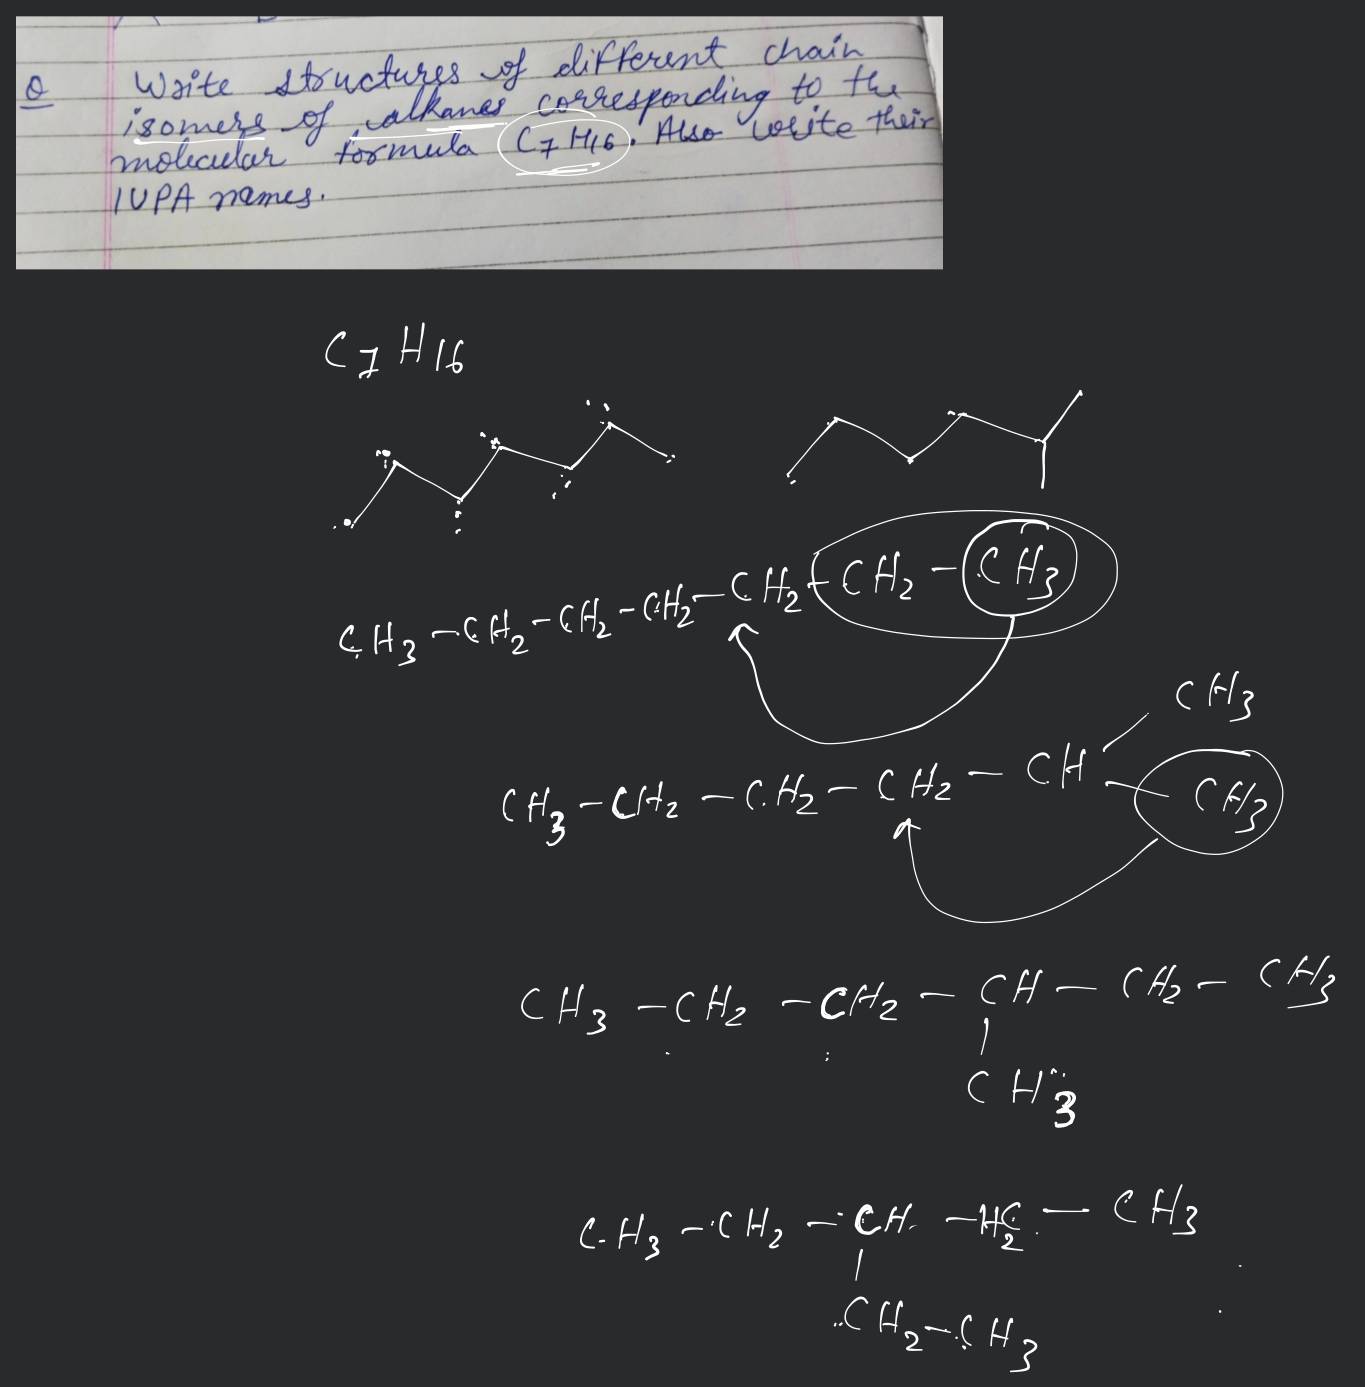 Q Write structures of different chain
isomers of alkanes corresponding to the
molecular formula C7H16. Also write their
IUPA names.
C7H16
CH3-CH2-CH2-CH2-CH2-CH2-CH3
CH3
CH3-CH2-CH2-CH2-CH
CH3
CH3-CH2-CH2-CH-CH2-CH3
CH3
CH3-CH2-CH-H2C-CH3
CH2-CH3